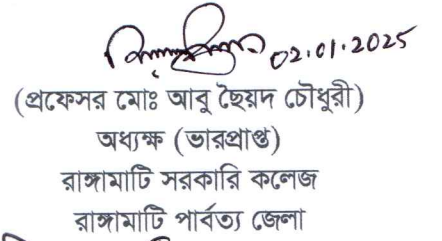 02.01.2025
(প্রফেসর মোঃ আবু ছৈয়দ চৌধুরী)
অধ্যক্ষ (ভারপ্রাপ্ত)
রাঙ্গামাটি সরকারি কলেজ
রাঙ্গামাটি পার্বত্য জেলা